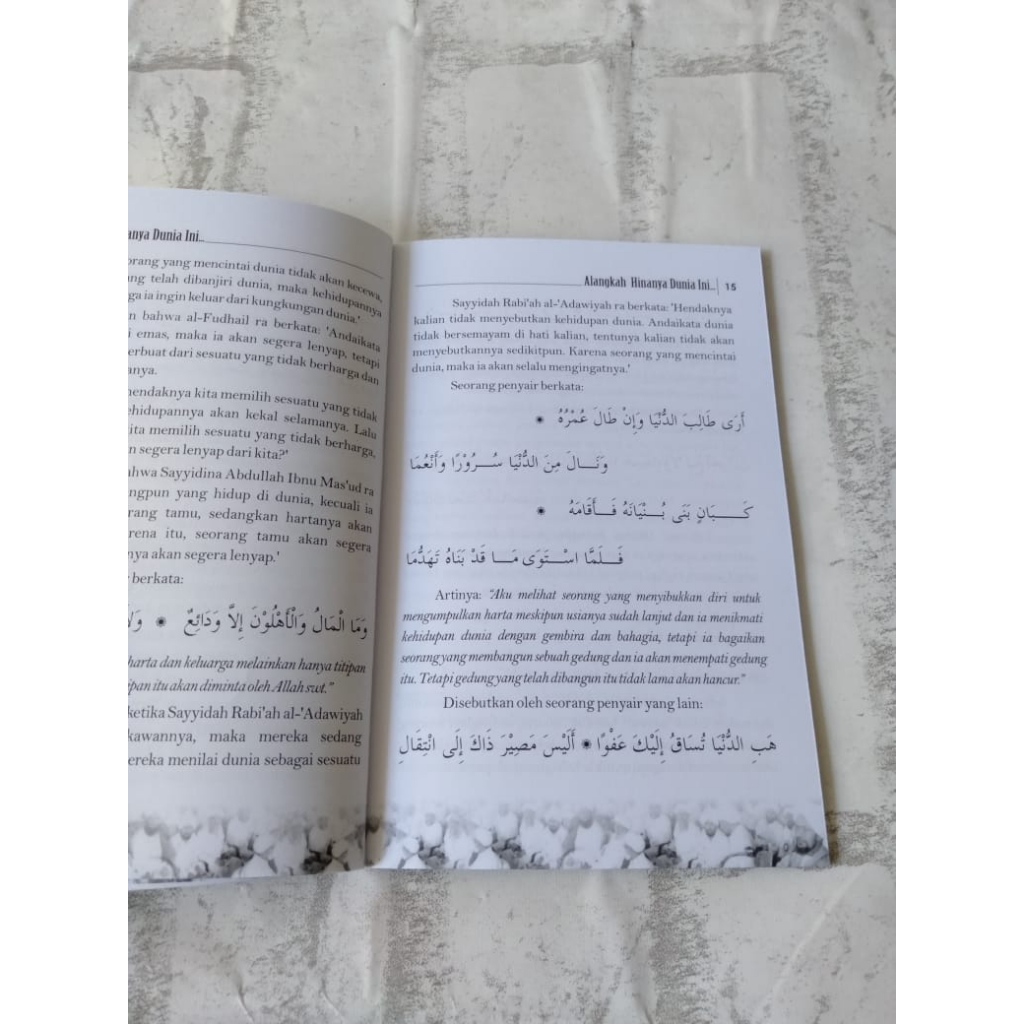 anya Dunia Ini...
orang yang mencintai dunia tidak akan kecewa,
ng telah dibanjiri dunia, maka kehidupannya
ga ia ingin keluar dari kungkungan dunia.'
n bahwa al-Fudhail ra berkata: 'Andaikata
i emas, maka ia akan segera lenyap, tetapi
erbuat dari sesuatu yang tidak berharga dan
anya.
hendaknya kita memilih sesuatu yang tidak
ehidupannya akan kekal selamanya. Lalu
ita memilih sesuatu yang tidak berharga,
n segera lenyap dari kita?'
ahwa Sayyidina Abdullah Ibnu Mas'ud ra
ngpun yang hidup di dunia, kecuali ia
rang tamu, sedangkan hartanya akan
arena itu, seorang tamu akan segera
nya akan segera lenyap.'
r berkata:
وَمَا الْمَالُ وَالْأَهْلُوْنَ إِلَّا وَدَائِعٌ * وَلَا
harta dan keluarga melainkan hanya titipan
ipan itu akan diminta oleh Allah swt."
ketika Sayyidah Rabi'ah al-'Adawiyah
kawannya, maka mereka sedang
ereka menilai dunia sebagai sesuatu
Alangkah Hinanya Dunia Ini... 15
Sayyidah Rabi'ah al-'Adawiyah ra berkata: 'Hendaknya
kalian tidak menyebutkan kehidupan dunia. Andaikata dunia
tidak bersemayam di hati kalian, tentunya kalian tidak akan
menyebutkannya sedikitpun. Karena seorang yang mencintai
dunia, maka ia akan selalu mengingatnya.'
Seorang penyair berkata:
أَرَى طَالِبَ الدُّنْيَا وَإِنْ طَالَ عُمْرُهُ *
وَنَــالَ مِنَ الدُّنْيَا سُــرُوْرًا وَأَنْعُمَا
كَــبَانٍ بَنَى بُــنْيَانَهُ فَــأَقَامَهُ *
فَــلَمَّا اسْــتَوَى مَــا قَدْ بَنَاهُ تَهَدَّمَا
Artinya: "Aku melihat seorang yang menyibukkan diri untuk
mengumpulkan harta meskipun usianya sudah lanjut dan ia menikmati
kehidupan dunia dengan gembira dan bahagia, tetapi ia bagaikan
seorang yang membangun sebuah gedung dan ia akan menempati gedung
itu. Tetapi gedung yang telah dibangun itu tidak lama akan hancur."
Disebutkan oleh seorang penyair yang lain:
هَبِ الدُّنْيَا تُسَاقُ إِلَيْكَ عَفْوًا * أَلَيْسَ مَصِيْرَ ذَاكَ إِلَى انْتِقَالِ